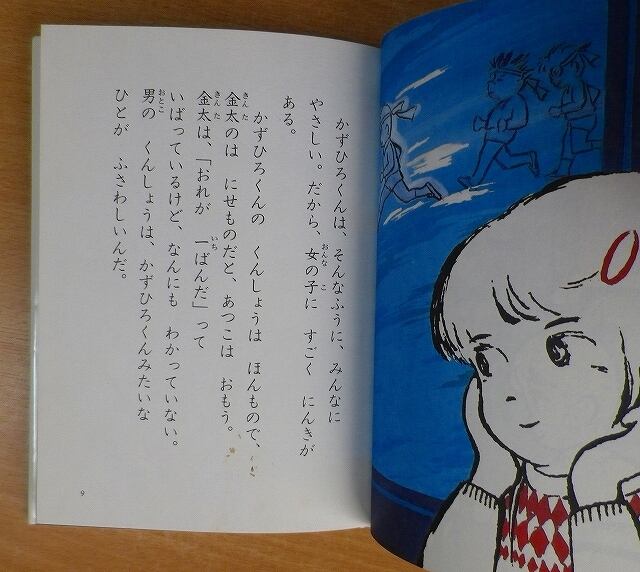 かずひろくんは、そんなふうに、みんなに
やさしい。だから、女の子に すごく にんきが
ある。
かずひろくんの くんしょうは ほんもので、
金太のは にせものだと、あつこは おもう。
金太は、「おれが 一ばんだ」って
いばっているけど、なんにも わかっていない。
男の くんしょうは、かずひろくんみたいな
ひとが ふさわしいんだ。
9